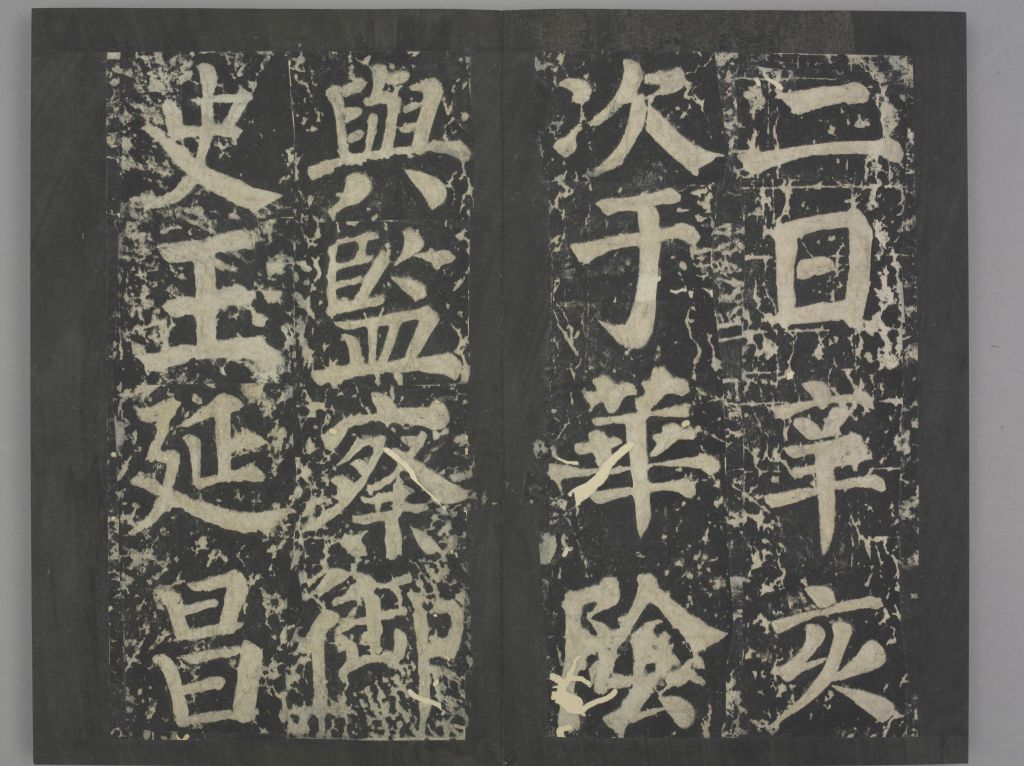 二日辛亥
次于華陰
與監察御
史王延昌